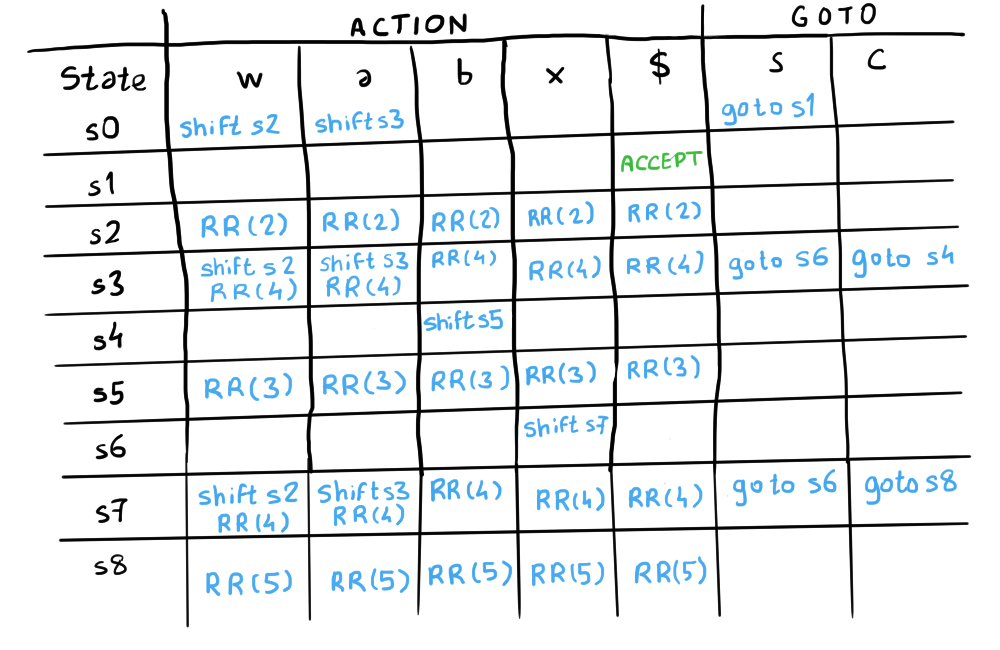 ACTION GOTO
State w a b x $ S C
s0 shift s2 shift s3 goto s1
s1 ACCEPT
s2 RR(2) RR(2) RR(2) RR(2) RR(2)
s3 shift s2 shift s3 RR(4) RR(4) RR(4) goto s6 goto s4
RR(4) RR(4)
s4 shift s5
s5 RR(3) RR(3) RR(3) RR(3) RR(3)
s6 shift s7
s7 shift s2 shift s3 RR(4) RR(4) RR(4) goto s6 goto s8
RR(4) RR(4)
s8 RR(5) RR(5) RR(5) RR(5) RR(5)